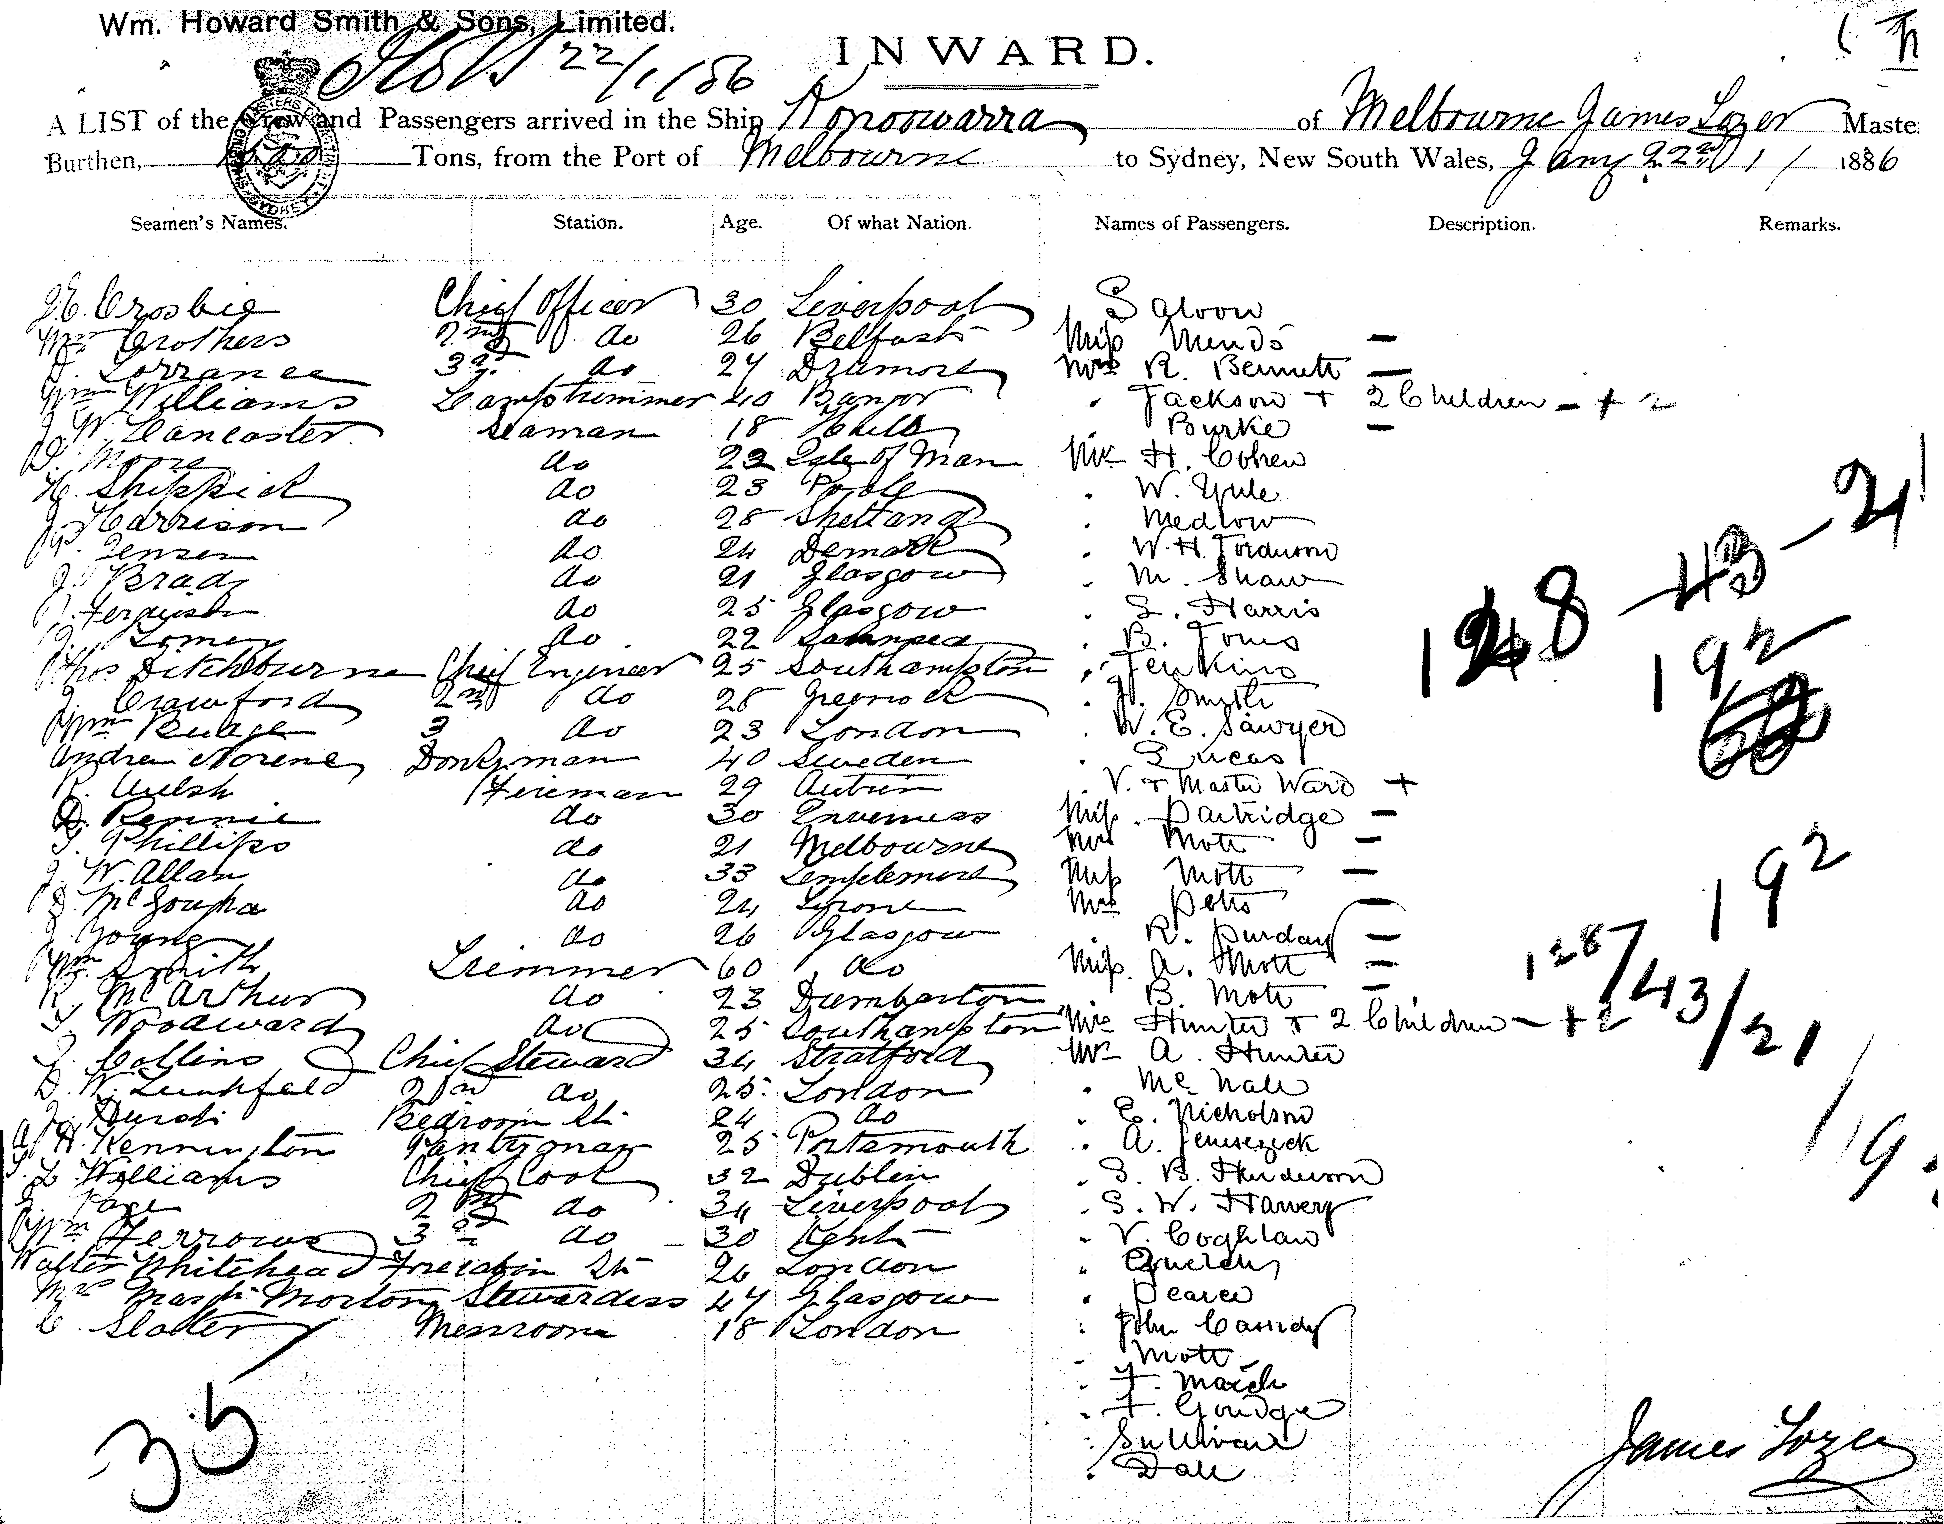 Wm. Howard Smith & Sons, Limited.
22/1/86
INWARD.
A LIST of the Crew and Passengers arrived in the Ship Konoowarra of Melbourne James Lozer Maste
Burthen, Tons, from the Port of Melbourne to Sydney, New South Wales, Jany 22nd 1886
Seamen's Names. Station. Age. Of what Nation. Names of Passengers. Description. Remarks.
Crosbie Chief Officer 30 Liverpool Saloon
Crothers 2nd do 26 Belfast Miss Mends —
Lorrance 3rd do 27 Dramore Mrs R. Bennett —
Wm Williams Lamptrimmer 40 Bangor " Jackson + 2 Children - + 2
J. W. Lancaster Seaman 18 Hull Burke —
D. Moore do 22 Isle of Man Mr H. Cohen
H. Shippick do 23 Poole " W. Yule
Harrison do 28 Shetland " Medlow
Jensen do 24 Demark " W. H.
J. Brady do 21 Glasgow " M. Shaw
Ferguson do 25 Glasgow " S. Harris
do 22 " B. Jones
Thos Ditchburne Chief Engineer 25 Southampton " Jenkins
Crawford 2nd do 28 Greenock " Smith
Wm Budge 3 do 23 London " W. E. Sawyer
Andrew Norene Donkyman 40 Sweden " Lucas
R. Welsh Fireman 29 " V. + Master Ward +
Rennie do 30 Inverness Miss Partridge —
Phillips do 21 Melbourne Mrs Mott —
J. W. Allan do 33 Templemore Miss Mott —
do 24 Tyrone Mrs —
Young do 26 Glasgow " R. Purday —
Wm Smith Trimmer 60 do Miss A. Mott —
R. McArthur do 23 Dumbarton B. Mott —
Woodward do 25 Southampton Mrs Hunter + 2 Children - + 2
Collins Chief Steward 34 Stratford Mr A. Hunter
D. W. 2nd do 25 London "
Bedroom St. 24 do " E. Nicholson
H. Kennington Pantryman 25 Portsmouth " A.
Williams Chief Cook 32 Dublin " S. B. Henderson
Page 2nd do 34 Liverpool " S. W.
Wm Ferrows 3rd do 30 Kent " V. Coghlan
Walter Whitehead Forecabin St 26 London "
Mrs Morton Stewardess 47 Glasgow " Pearce
C. Slater Messroom 18 London " John Cassidy
" Mott
" F. March
" F. Goudge
" Sullivan
" Dale
35
128 - 43 - 21
192
192
128/43/21
James Lozer